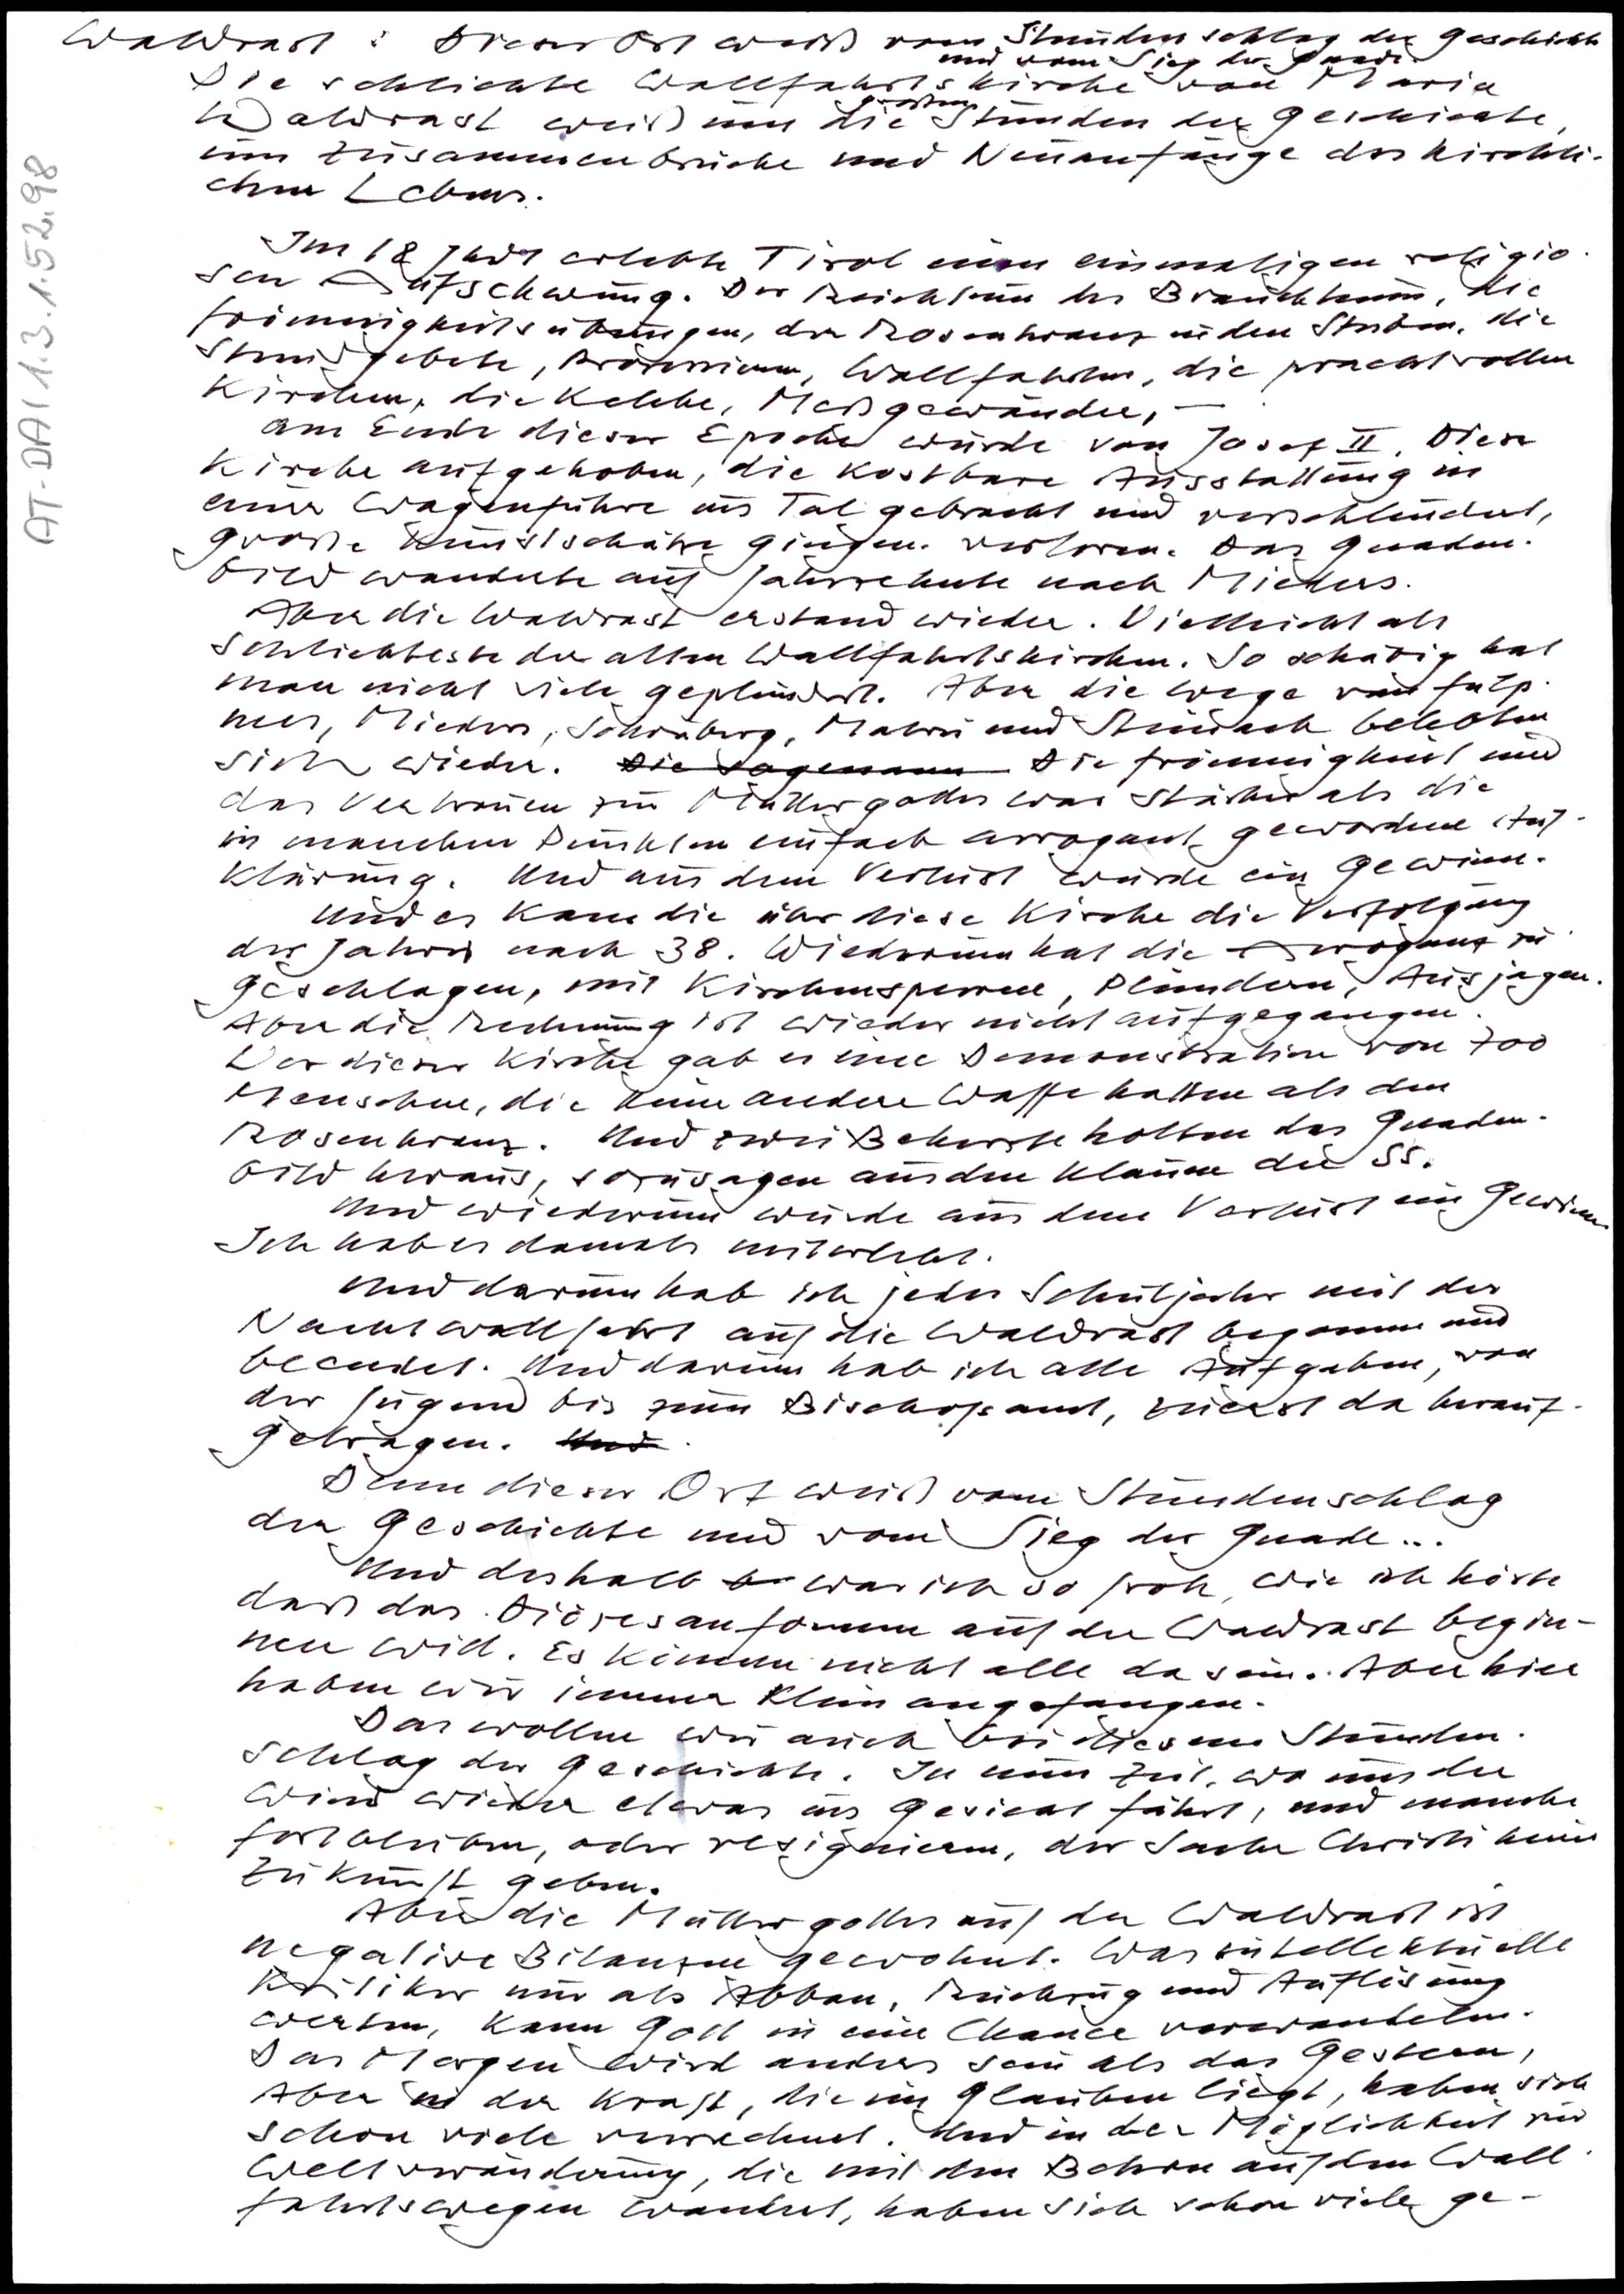 AT-DAI 1.3.1.52.98
Waldrast : Dieser Ort weiß vom Stundenschlag der Geschichte
und vom Sieg der Gnade
Die schlichte Wallfahrtskirche von Maria
Waldrast weiß um die großen Stunden der Geschichte,
um Zusammenbrüche und Neuanfänge des kirchli-
chen Lebens.
Im 18 Jhdt erlebte Tirol einen einmaligen religiö-
sen Aufschwung. Der Reichtum des Brauchtums, die
Frömmigkeitsübungen, der Rosenkranz in den Stuben, die
Stundgebete, Prozessionen, Wallfahrten, die prachtvollen
Kirchen, die Kelche, Meßgewänder, –
Am Ende dieser Epoche wurde von Josef II. diese
Kirche aufgehoben, die kostbare Ausstattung in
einer Wagenfuhre ins Tal gebracht und verschleudert,
große Kunstschätze gingen verloren. Das Gnaden-
bild wanderte auf Jahrzehnte nach Mieders.
Aber die Waldrast erstand wieder. Vielleicht als
schlichteste der alten Wallfahrtskirchen. So schäbig hat
man nicht viele geplündert. Aber die Wege von Fulp-
mes, Mieders, Schönberg, Matrei und Steinach belebten
sich wieder. Die Frömmigkeit und
das Vertrauen zur Muttergottes war stärker als die
in manchen Punkten einfach arrogant gewordene Auf-
klärung. Und aus dem Verlust wurde ein Gewinn.
Und es kam die über diese Kirche die Verfolgung
der Jahre nach 38. Wiederum hat die Arroganz zu
geschlagen, mit Kirchensperren, Plündern, Ausjagen.
Aber die Rechnung ist wieder nicht aufgegangen.
Vor dieser Kirche gab es eine Demonstration von 700
Menschen, die keine andere Waffe hatten als den
Rosenkranz. Und zwei Beherzte holten das Gnaden-
bild heraus, sozusagen aus den Klauen der SS.
Und wiederum wurde aus dem Verlust ein Gewinn
Ich hab es damals miterlebt.
Und darum hab ich jedes Schuljahr mit der
Nachtwallfahrt auf die Waldrast begonnen und
beendet. Und darum hab ich alle Aufgaben, von
der Jugend bis zum Bischofsamt, zuerst da herauf-
getragen. Und
Denn dieser Ort weiß vom Stundenschlag
der Geschichte und vom Sieg der Gnade...
Und deshalb war ich so froh, wie ich hörte
daß das Diözesanforum auf der Waldrast begin-
nen wird. Es können nicht alle da sein. Aber hier
haben wir immer klein angefangen.
Das wollen wir auch bei diesem Stunden-
schlag der Geschichte. In einer Zeit, wo uns der
Wind wieder etwas ins Gesicht fährt, und manche
fortbleiben, oder resignieren, der Sache Christi keine
Zukunft geben.
Aber die Muttergottes auf der Waldrast ist
negative Bilanzen gewohnt. Was intellektuelle
Kritiker nur als Abbau, Rückzug und Auflösung
werten, kann Gott in eine Chance verwandeln.
Das Morgen wird anders sein als das Gestern,
Aber in der Kraft, die im Glauben liegt, haben sich
schon viele verrechnet. Und in der Möglichkeit zur
Weltveränderung, die mit den Betern auf den Wall-
fahrtswegen wandert, haben sich schon viele ge-